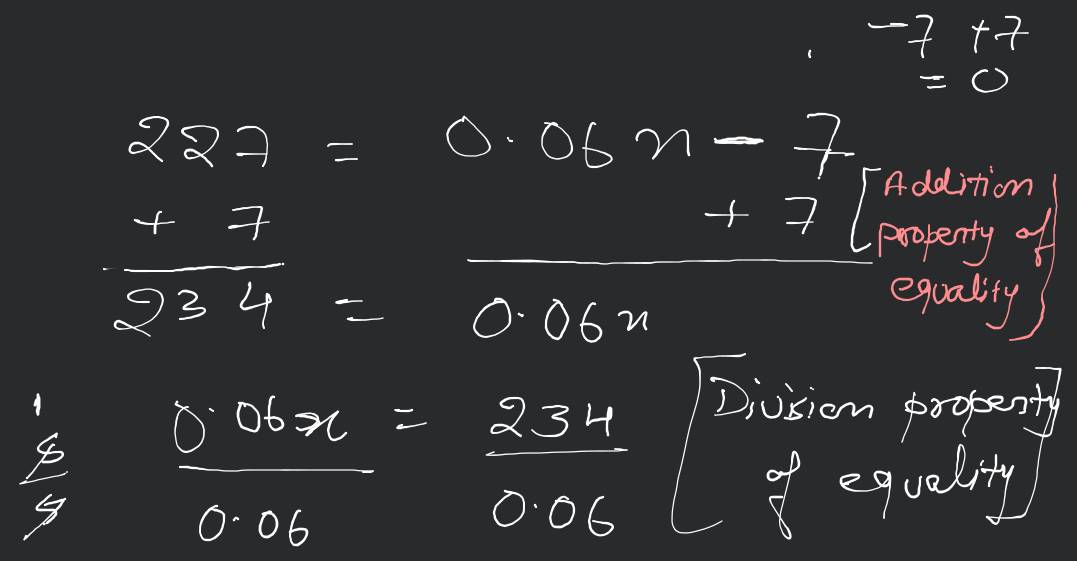 -7 +7
= 0
227 = 0.06x - 7
+ 7 + 7 [Addition property of equality]
234 = 0.06x
0.06x = 234 [Division property of equality]
0.06 0.06